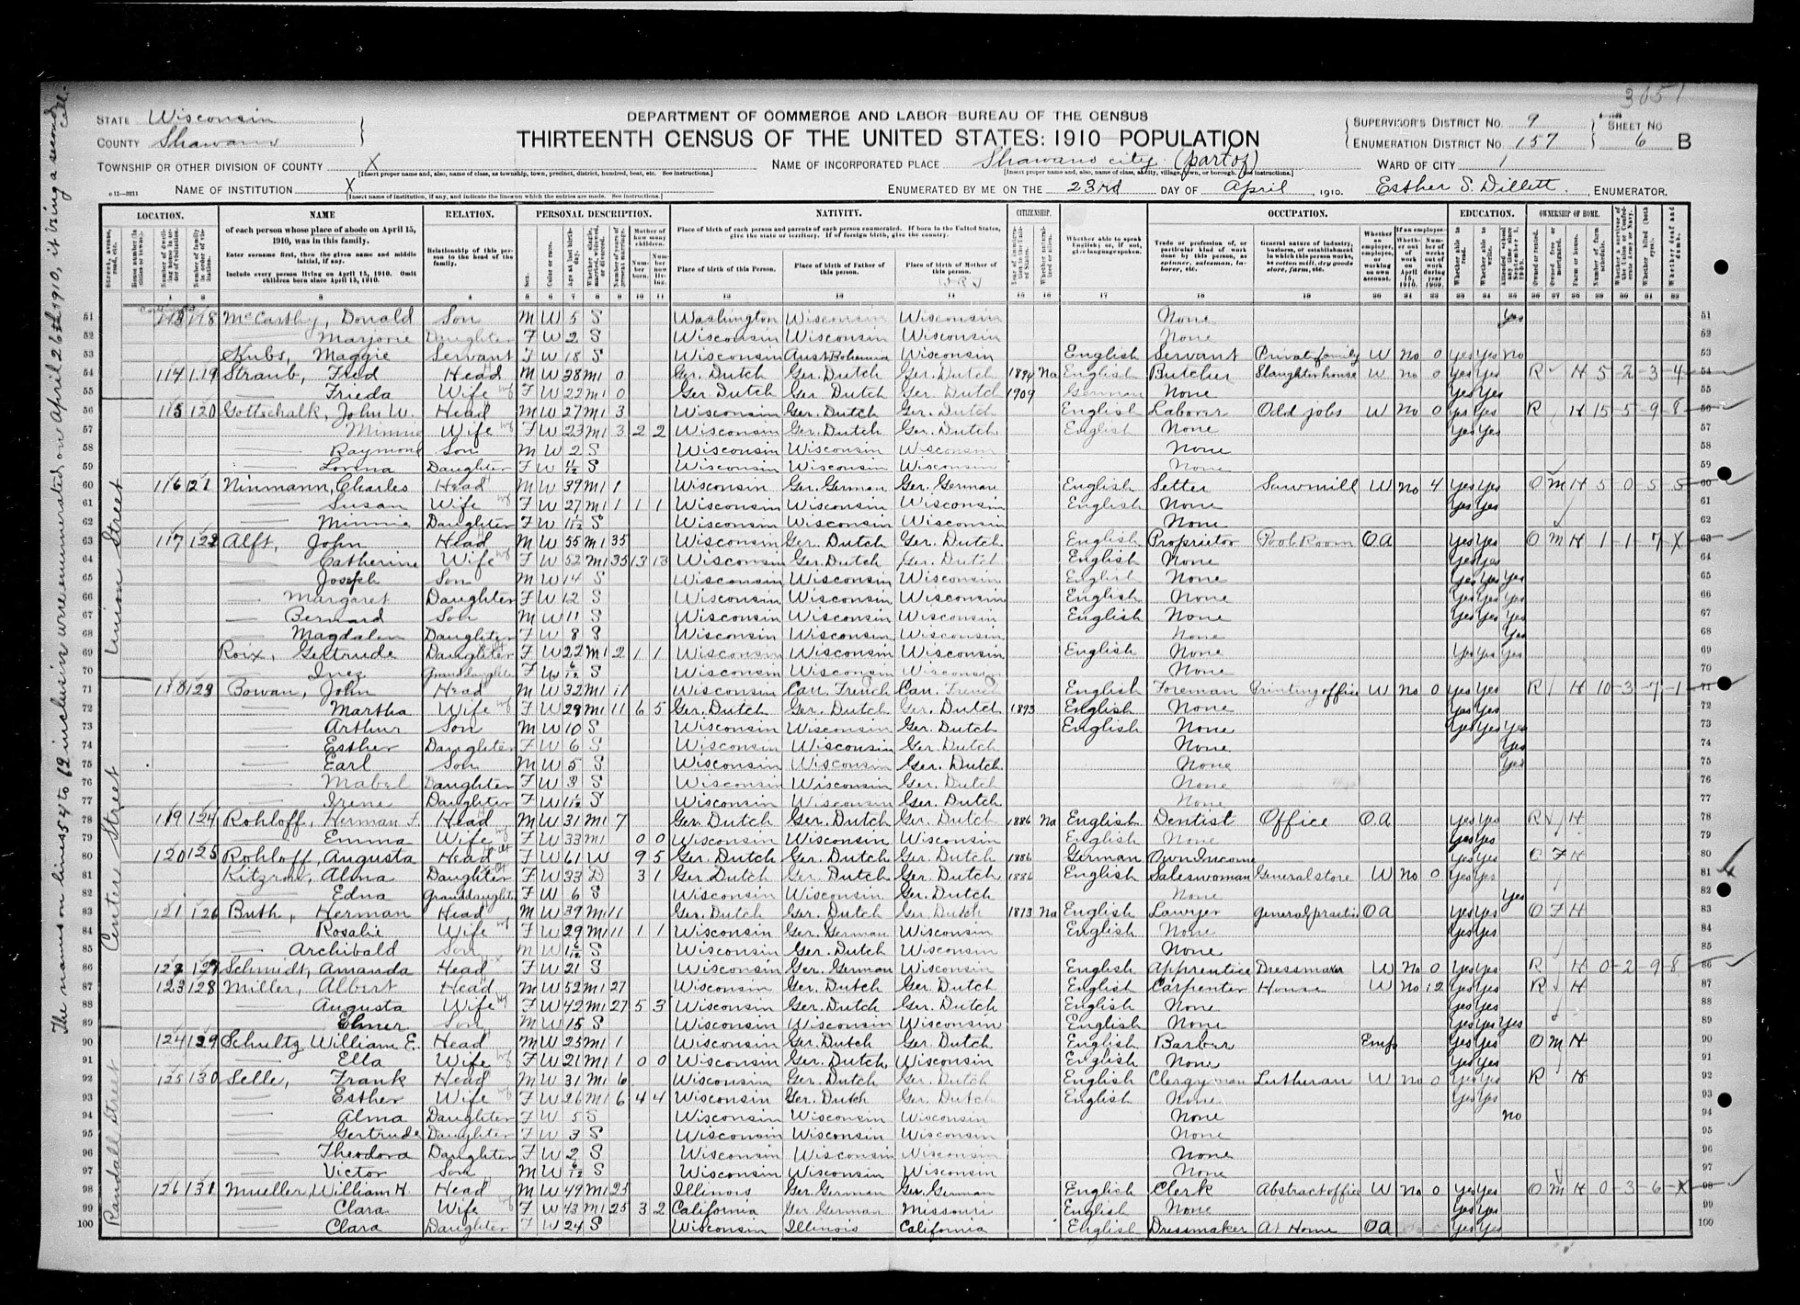 3051
STATE Wisconsin
COUNTY Shawano
TOWNSHIP OR OTHER DIVISION OF COUNTY X
NAME OF INSTITUTION X
DEPARTMENT OF COMMERCE AND LABOR—BUREAU OF THE CENSUS
THIRTEENTH CENSUS OF THE UNITED STATES: 1910—POPULATION
NAME OF INCORPORATED PLACE Shawano city (part of)
ENUMERATED BY ME ON THE 23rd DAY OF April, 1910. Esther S. Dillett, ENUMERATOR.
SUPERVISOR'S DISTRICT No. 9
ENUMERATION DISTRICT No. 157
WARD OF CITY 1
SHEET No 6 B
LOCATION. NAME RELATION. PERSONAL DESCRIPTION. NATIVITY. CITIZENSHIP. OCCUPATION. EDUCATION. OWNERSHIP OF HOME.
of each person whose place of abode on April 15, 1910, was in this family.
Enter surname first, then the given name and middle initial, if any.
Include every person living on April 15, 1910. Omit children born since April 15, 1910.
Relationship of this person to the head of the family.
Place of birth of this Person. Place of birth of Father of this person. Place of birth of Mother of this person.
51 118 McCarthy, Donald Son M W 5 S Washington Wisconsin Wisconsin None Yes 51
52 Marjorie Daughter F W 2 S Wisconsin Wisconsin Wisconsin None 52
53 Maggie Servant F W 18 S Wisconsin Aust Bohemia Wisconsin English Servant Private family W No 0 Yes Yes No 53
54 114 119 Straub, Fred Head M W 38 M1 0 Ger. Dutch Ger. Dutch Ger. Dutch 1894 Na English Butcher Slaughter house W no 0 Yes Yes R H 5-2-3-4 54
55 Frieda Wife F W 22 M1 0 Ger. Dutch Ger Dutch Ger. Dutch 1909 German None Yes Yes 55
56 115 120 Gottschalk, John W. Head M W 27 M1 3 Wisconsin Ger. Dutch Ger. Dutch English Laborer Odd jobs W No 0 Yes Yes R H 15-5-9-8 56
57 Minnie Wife F W 23 M1 3 2 2 Wisconsin Ger. Dutch Ger. Dutch English None Yes Yes 57
58 Raymond Son M W 2 S Wisconsin Wisconsin Wisconsin None 58
59 Lorena Daughter F W S Wisconsin Wisconsin Wisconsin None 59
60 116 121 Ninmann, Charles Head M W 39 M1 1 Wisconsin Ger. German Ger. German English Setter Sawmill W No 4 Yes Yes O M H 5-0-5-5 60
61 Susan Wife F W 27 M1 1 1 1 Wisconsin Wisconsin Wisconsin English None Yes Yes 61
62 Minnie Daughter F W S Wisconsin Wisconsin Wisconsin None 62
63 117 122 Alft, John Head M W 55 M1 35 Wisconsin Ger. Dutch Ger. Dutch English Proprietor Pool Room OA Yes Yes O M H 1-1-7-X 63
64 Catherine Wife F W 52 M1 35 13 13 Wisconsin Ger. Dutch Ger. Dutch English None Yes Yes 64
65 Joseph Son M W 14 S Wisconsin Wisconsin Wisconsin English None Yes Yes Yes 65
66 Margaret Daughter F W 12 S Wisconsin Wisconsin Wisconsin English None Yes Yes Yes 66
67 Bernard Son M W 11 S Wisconsin Wisconsin Wisconsin English None Yes Yes Yes 67
68 Magdalen Daughter F W 8 S Wisconsin Wisconsin Wisconsin None Yes 68
69 Roix, Gertrude Daughter F W 22 M1 2 1 1 Wisconsin Wisconsin Wisconsin English None Yes Yes Yes 69
70 Inez Granddaughter F W 6/12 S Wisconsin Wisconsin Wisconsin None 70
71 118 123 Bowan, John Head M W 32 M1 11 Wisconsin Can. French Can. French English Foreman Printing office W No 0 Yes Yes R H 10-3-7-1 71
72 Martha Wife F W 29 M1 11 6 5 Ger. Dutch Ger. Dutch Ger. Dutch 1893 English None Yes Yes 72
73 Arthur Son M W 10 S Wisconsin Wisconsin Ger. Dutch English None Yes Yes Yes 73
74 Esther Daughter F W 6 S Wisconsin Wisconsin Ger. Dutch None Yes 74
75 Earl Son M W 5 S Wisconsin Wisconsin Ger. Dutch None Yes 75
76 Mabel Daughter F W 3 S Wisconsin Wisconsin Ger. Dutch None 76
77 Irene Daughter F W S Wisconsin Wisconsin Ger. Dutch None 77
78 119 124 Rohloff, Herman F. Head M W 31 M1 7 Ger. Dutch Ger. Dutch Ger. Dutch 1886 Na English Dentist Office OA R H 78
79 Emma Wife F W 33 M1 0 0 Wisconsin Wisconsin Wisconsin English None Yes Yes 79
80 120 125 Rohloff, Augusta Head F W 61 W 9 5 Ger. Dutch Ger. Dutch Ger. Dutch 1886 German Own Income Yes Yes O F H 80
81 Kitzrow, Alma Daughter F W 33 D 3 1 Ger. Dutch Ger. Dutch Ger. Dutch 1886 English Saleswoman General store W No 0 Yes Yes 81
82 Edna Granddaughter F W 6 S Wisconsin Wisconsin Ger. Dutch None Yes 82
83 121 126 Buth, Herman Head M W 39 M1 11 Ger. Dutch Ger. Dutch Ger. Dutch 1873 Na English Lawyer General practice OA Yes Yes O F H 83
84 Rosalie Wife F W 29 M1 11 1 1 Wisconsin Ger. German Wisconsin English None Yes Yes 84
85 Archibald Son M W S Wisconsin Ger. Dutch Wisconsin None 85
86 122 127 Schmidt, Amanda Head F W 21 S Wisconsin Ger. German Wisconsin English Apprentice Dressmaker W No 0 Yes Yes R H 0-2-9-8 86
87 123 128 Miller, Albert Head M W 52 M1 27 Wisconsin Ger. Dutch Ger. Dutch English Carpenter House W No 12 Yes Yes R H 87
88 Augusta Wife F W 42 M1 27 5 3 Wisconsin Ger. Dutch Ger. Dutch English None Yes Yes 88
89 Elmer Son M W 15 S Wisconsin Wisconsin Wisconsin English None Yes Yes Yes 89
90 124 129 Schultz William E. Head M W 25 M1 1 Wisconsin Ger. Dutch Ger. Dutch English Barber Emp Yes Yes O M H 90
91 Ella Wife F W 21 M1 1 0 0 Wisconsin Ger. Dutch Wisconsin English None Yes Yes 91
92 125 130 Selle, Frank Head M W 31 M1 6 Wisconsin Ger. Dutch Ger. Dutch English Clergyman Lutheran W No 0 Yes Yes R H 92
93 Esther Wife F W 26 M1 6 4 4 Wisconsin Ger. Dutch Ger. Dutch English None Yes Yes 93
94 Alma Daughter F W 5 S Wisconsin Wisconsin Wisconsin None No 94
95 Gertrude Daughter F W 3 S Wisconsin Wisconsin Wisconsin None 95
96 Theodora Daughter F W 2 S Wisconsin Wisconsin Wisconsin None 96
97 Victor Son M W S Wisconsin Wisconsin Wisconsin None 97
98 126 131 Mueller, William H. Head M W 49 M1 25 Illinois Ger. German Ger. German English Clerk Abstract office W No 0 Yes Yes O M H 0-3-6-X 98
99 Clara Wife F W 43 M1 25 3 2 California Ger. German Missouri English None Yes Yes 99
100 Clara Daughter F W 24 S Wisconsin Illinois California English Dressmaker At Home OA Yes Yes 100
Union Street
Center Street
Randall Street
The names on lines 54 to 62 inclusive were enumerated on April 26th 1910, it being a second call.